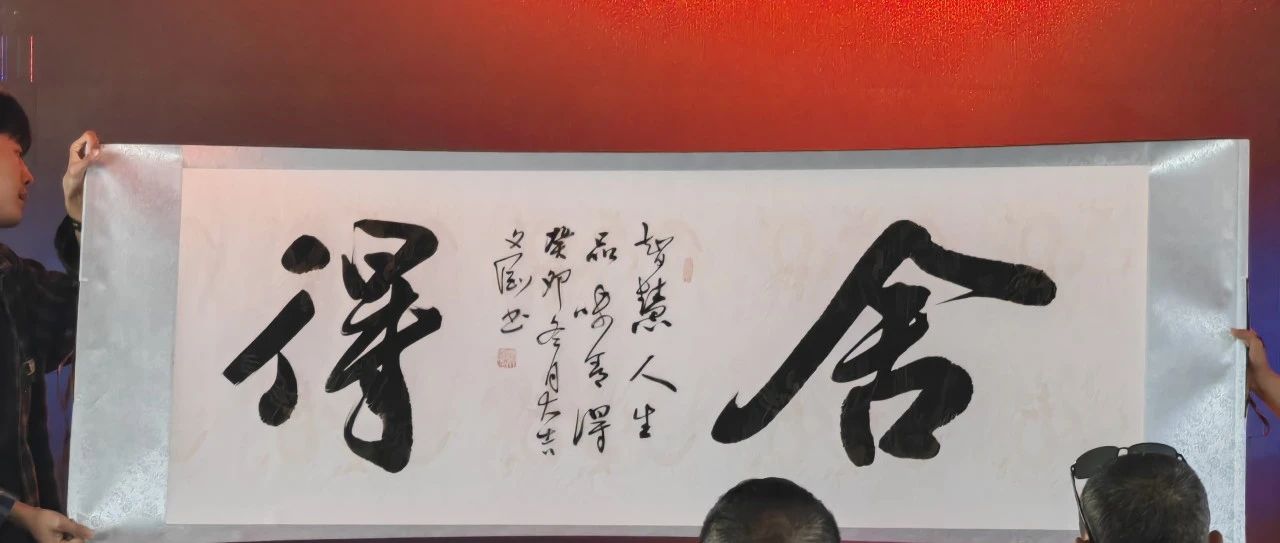 舍得
智慧人生
品味舍得
癸卯冬月大吉
文书